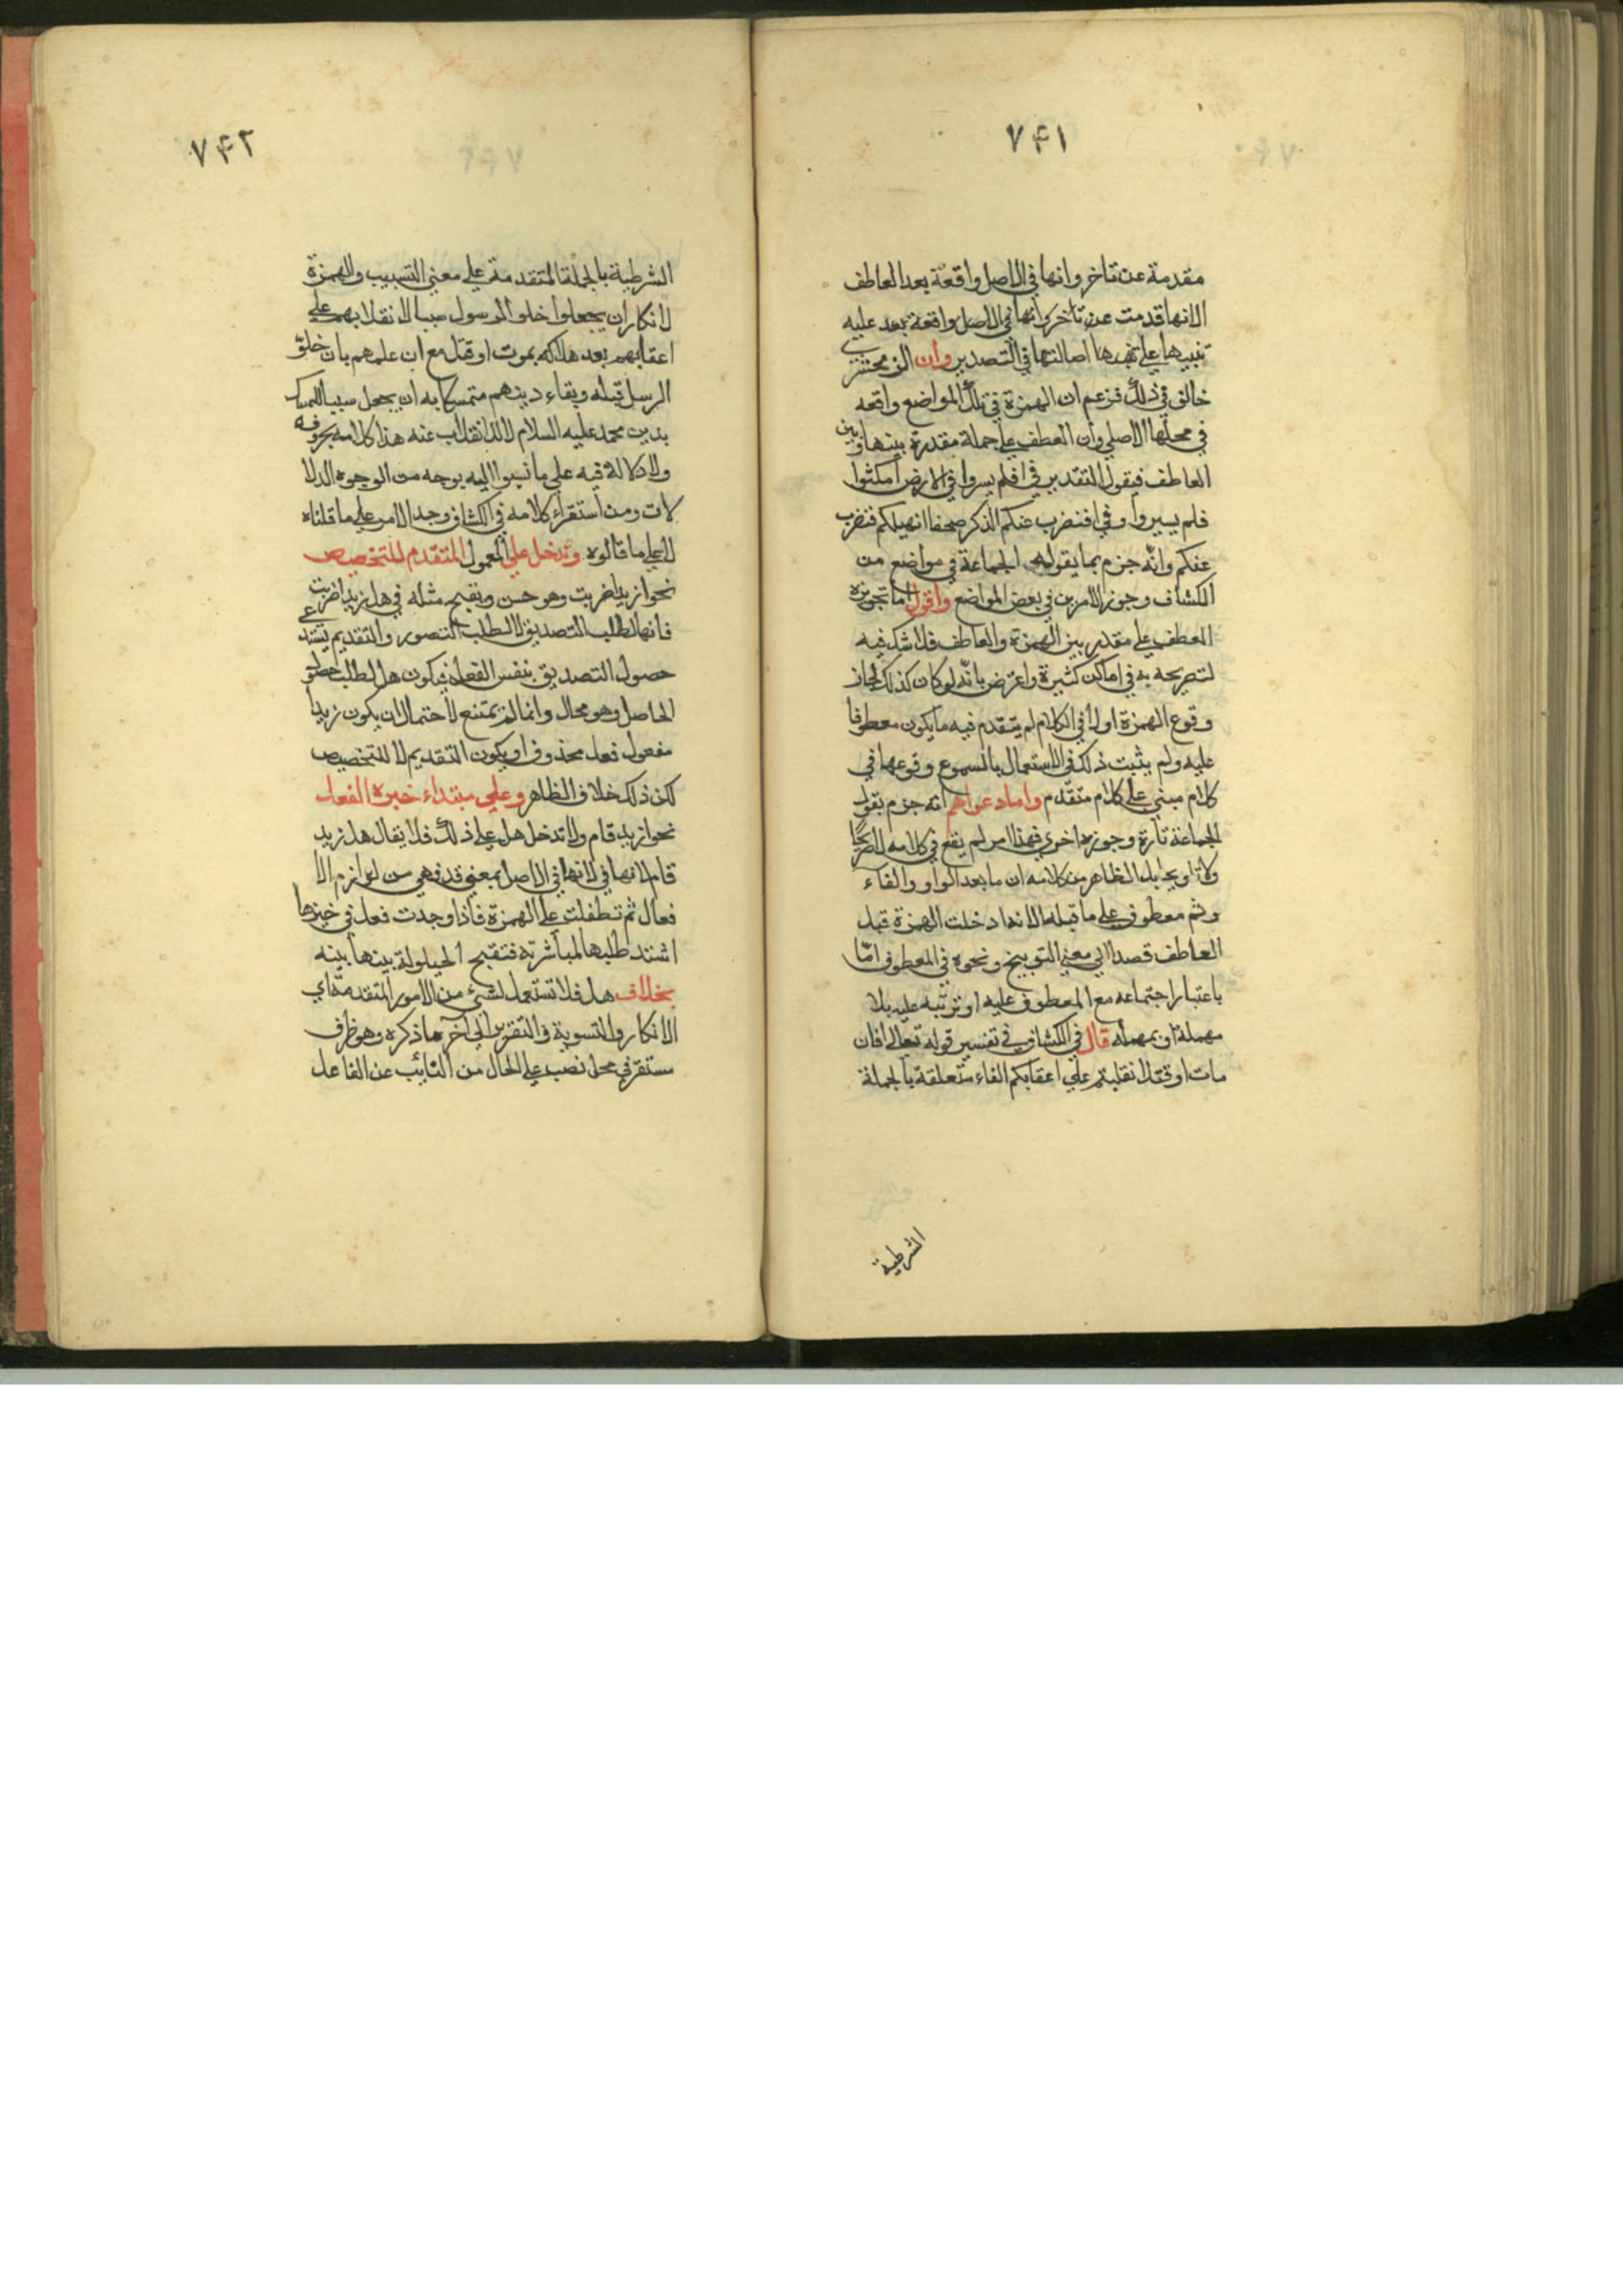 ٧٤١
مقدمة عن تاخر وانها في الاصل واقعة بعد العاطف
الانها قدمت عن تاخر وانها في الاصل واقعة بعد عليه
تنبيها على اصالتها في التصدير وان الزمخشري
خالق في ذلك فزعم ان الهمزة في تلك المواضع واقعه
في محلها الاصلي وان العطف على جملة مقدرة بينها وبين
العاطف فيقول التقدير في افلم يسروا في الارض امكثوا
فلم يسيروا وفي افنضرب عنكم الذكر صفحا انهملكم فنضرب
عنكم وانه جزم بما يقوله الجماعة في مواضع من
الكشاف وجوز الامرين في بعض المواضع واقول اما تجويزه
العطف على مقدر بين الهمزة والعاطف فلا شك فيه
لتصريحه به في اماكن كثيرة واعترض بانه لو كان كذلك لجاز
وقوع الهمزة اولا في الكلام لم يتقدم فيه ما يكون معطوفا
عليه ولم يثبت ذلك في الاستعمال بالسموع وقوعها في
كلام مبني على كلام متقدم واما دعواهم انه جزم بقول
الجماعة تارة وجوزه اخري فهذا امر لم يقع في كلامه لا صريحا
ولا تاويحا بل الظاهر من كلامه ان ما بعد الواو والفاء
وثم معطوف على ما قبله الا انها دخلت الهمزة قبل
العاطف قصدا الي معنى التوبيخ ونحوه في المعطوف امّا
باعتبار اجتماعه مع المعطوف عليه او ترتبه عليه بلا
مهملة او بمهملة قال في الكشاف في تفسير قوله تعالى افان
مات او قتل انقلبتم علي اعقابكم الفاء متعلقة بالجملة
الشرطية
٧٤٢
الشرطية بالجملة المتقدمة على معنى التسبيب والهمزة
لانكار ان يجعلوا خلو الرسول سببا لانقلابهم على
اعقابهم بعد هلاكه بموت او قتل مع ان علمهم بان خلوّ
الرسل قبله وبقاء دينهم متمسكا به ان يجعل سببا للتمسك
بدين محمد عليه السلام لا للانقلاب عنه هذا كلامه بحروفه
ولا دلالة فيه علي ما نسبوا اليه بوجه من الوجوه الدلا
لات ومن استقراء كلامه في الكشاف وجد الامر على ما قلناه
لا على ما قالوه وتدخل علي المعمول المتقدم للتخصيص
نحو ازيدا ضربت وهو حسن ويقبح مثله في هل زيدا ضربت
فانها لطلب التصديق لا لطلب التصور والتقديم يستدعي
حصول التصديق بنفس الفعل فيكون هل لطلب حصول
الحاصل وهو محال وانما لم يمتنع لاحتمال ان يكون زيدا
مفعول فعل محذوف او يكون التقديم لا للتخصيص
لكن ذلك خلاف الظاهر وعلي مبتداء خبره الفعل
نحو ازيد قام ولا تدخل هل على ذلك فلا يقال هل زيد
قام لانها في لانها في الاصل بمعني قد فهي من لوازم الا
فعال ثم تطفلت على الهمزة فاذا وجدت فعل في خيزها
اشتد طلبها لمباشرته فتقبح الحيلولة بينها بينه
بخلاف هل فلا تستعمل لشيء من الامور المتقدمة اي
الانكار والتسوية والتقرير الي آخر ما ذكره وهو ظرف
مستقر في محل نصب على الحال من النائب عن الفاعل